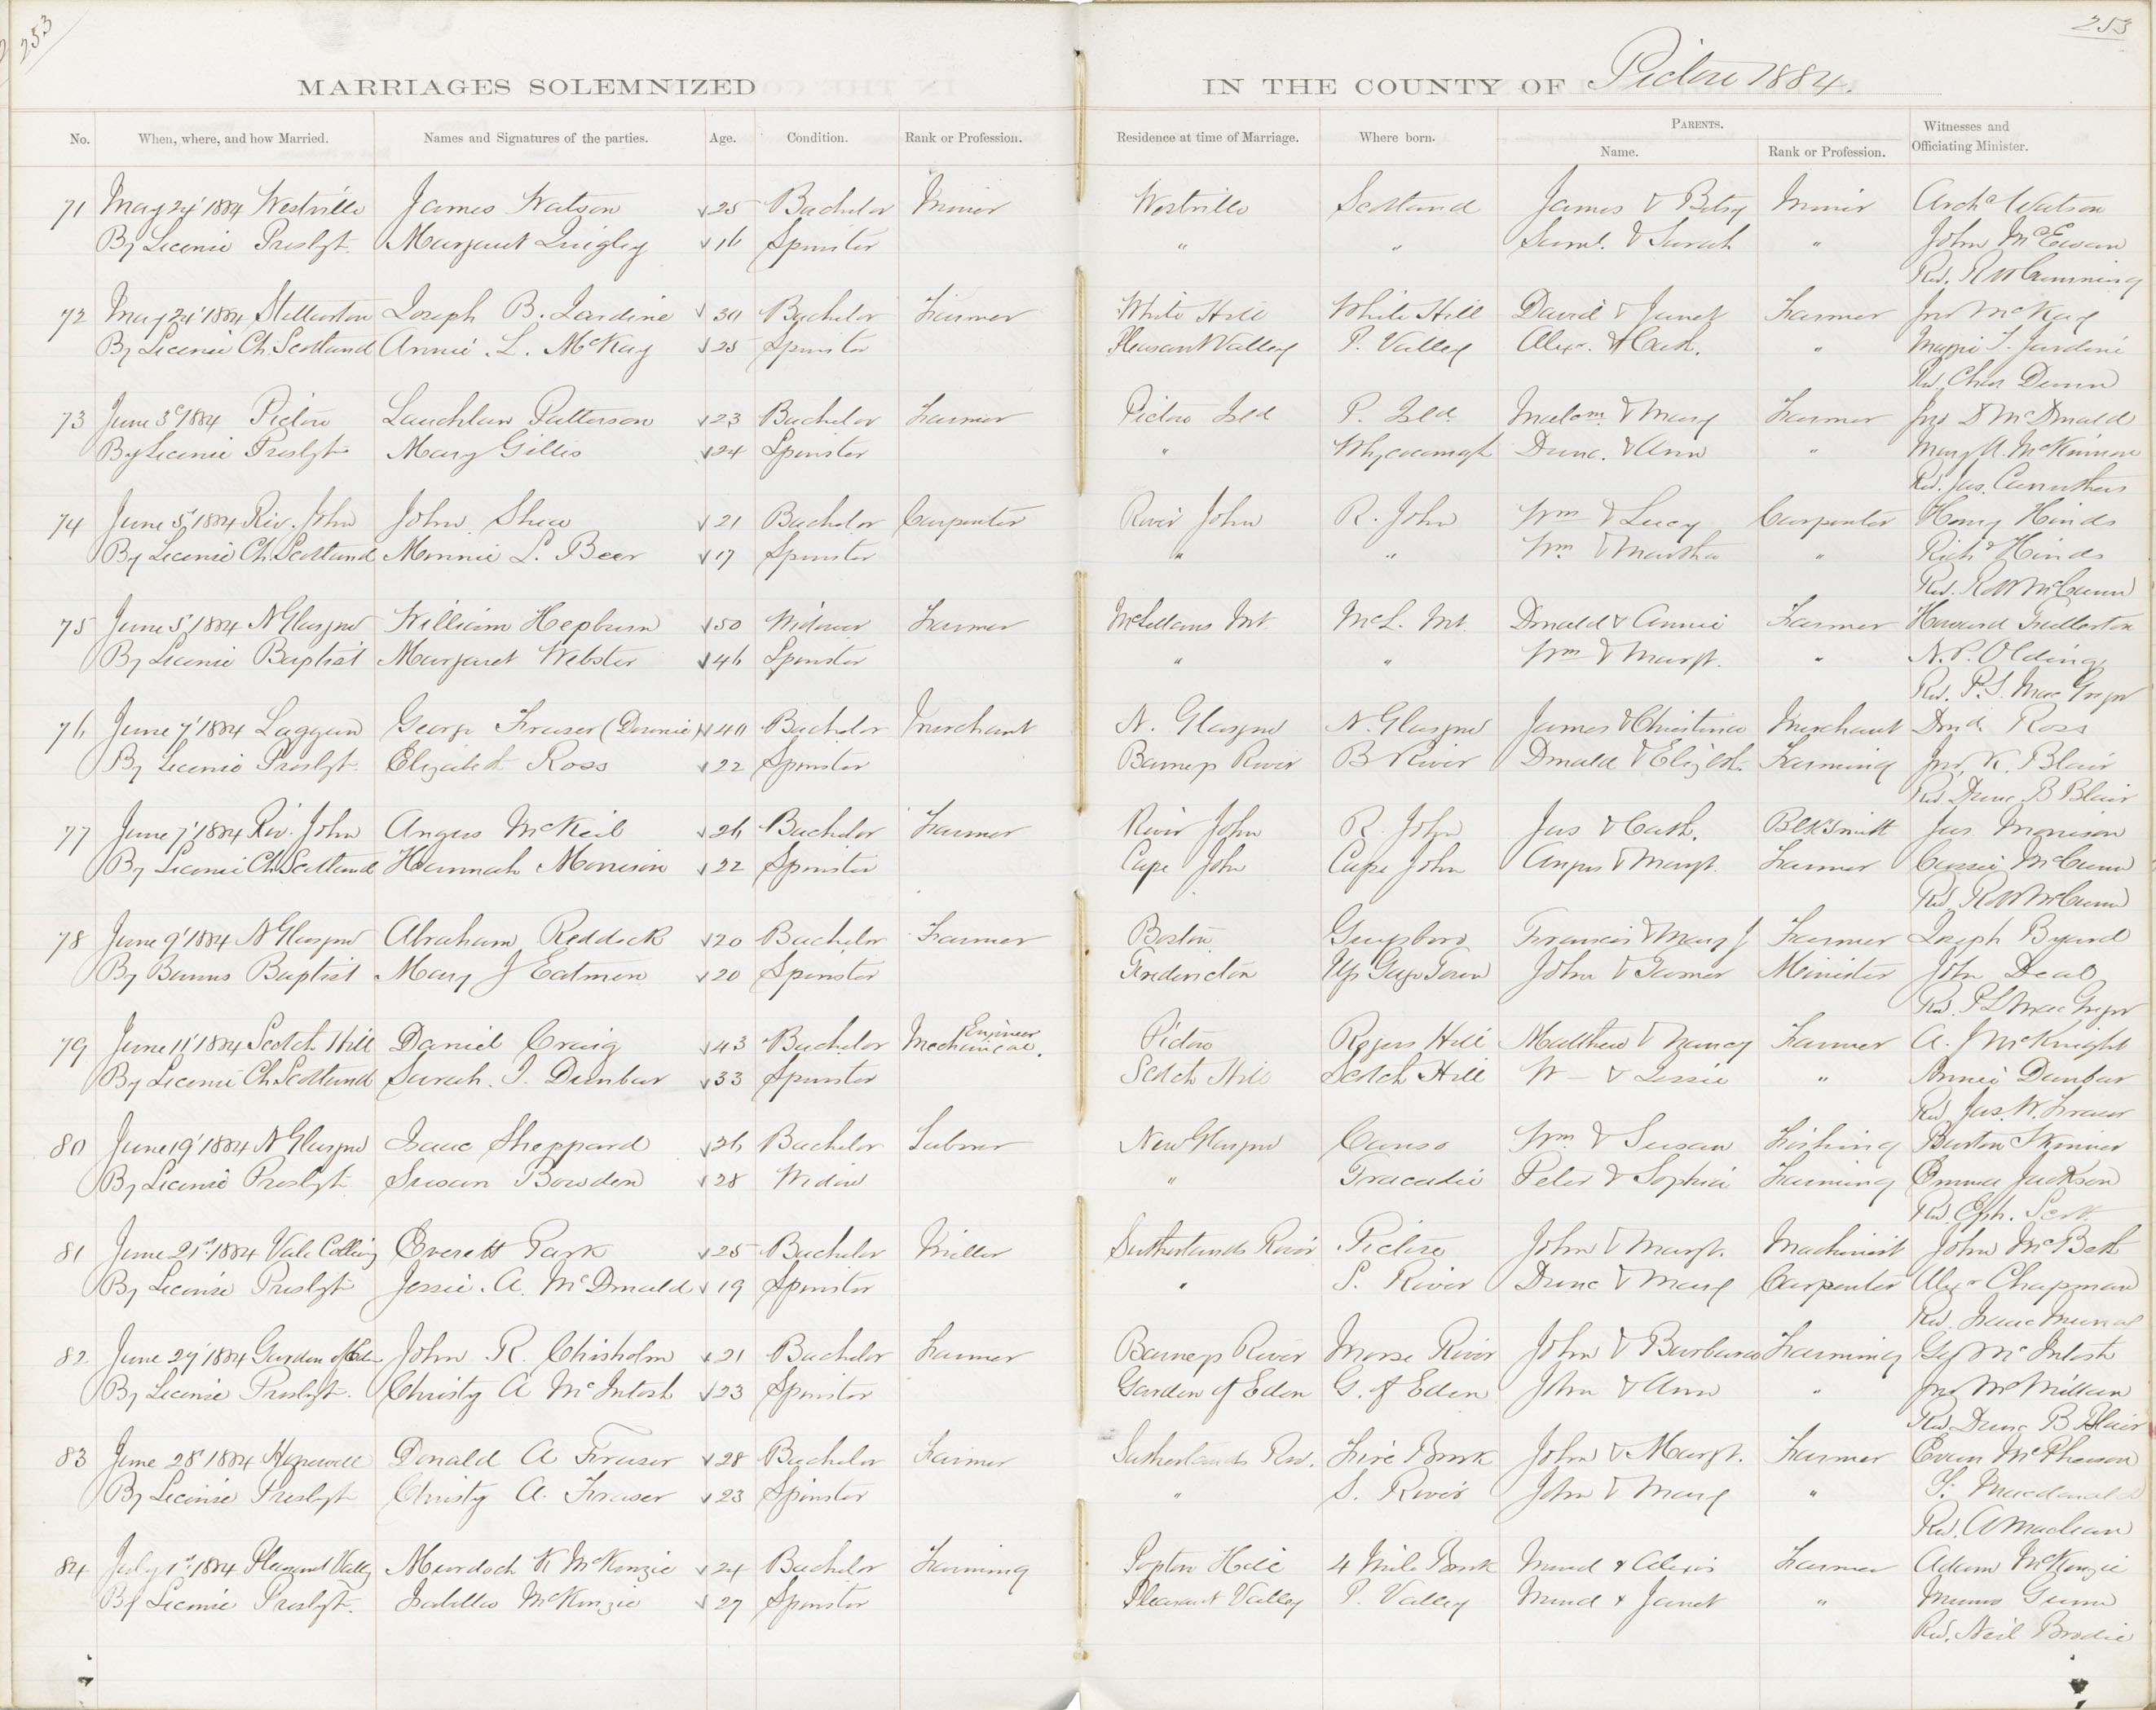 253
253
MARRIAGES SOLEMNIZED IN THE COUNTY OF Pictou 1884.
No. When, where, and how Married. Names and Signatures of the parties. Age. Condition. Rank or Profession. Residence at time of Marriage. Where born. PARENTS. Name. Rank or Profession. Witnesses and Officiating Minister.
71 May 24' 1884 Westville James Watson 25 Bachelor Miner Westville Scotland James & Betsy Miner Archd Watson
By License Presbyt. Margaret Quigley 16 Spinster " " Saml. & Sarah " John McEwan
Rev. R W Cumming
72 May 24' 1884 Stellarton Joseph B. Jardine 30 Bachelor Farmer White Hill White Hill David & Janet Farmer Jno McKay
By License Ch. Scotland Annie L. McKay 25 Spinster Pleasant Valley P. Valley Alexr. & Cath. " Maggie J. Jardine
Rev. Chas Dunn
73 June 3d 1884 Pictou Lauchlan Patterson 23 Bachelor Farmer Pictou Isld P. Isld. Malcm. & Mary Farmer Jno D McDonald
By License Presbyt Mary Gillis 24 Spinster " Whycocomagh Dunc. & Ann " Mary A. McKinnon
Rev. Jas. Carruthers
74 June 5' 1884 Riv. John John Shea 21 Bachelor Carpenter River John R. John Wm & Lucy Carpenter Henry Hinds
By License Ch. Scotland Minnie L. Beer 17 Spinster " " Wm & Martha " Richd Hinds
Rev. R W McCunn
75 June 5' 1884 N Glasgow William Hepburn 50 Widower Farmer McLellans Mt. McL. Mt. Donald & Annie Farmer Howard Fullerton
By License Baptist Margaret Webster 46 Spinster " " Wm & Margt. " N. P. Olding
Rev. P. S. MacGregor
76 June 7' 1884 Laggan George Fraser (Downie) 40 Bachelor Merchant N. Glasgow N. Glasgow James & Christina Merchant Dond. Ross
By License Presbyt. Elizabeth Ross 22 Spinster Barneys River B River Donald & Elizbth. Farming Jno. K. Blair
Rev. Dunc. B Blair
77 June 7' 1884 Riv. John Angus McKeil 26 Bachelor Farmer River John R. John Jas & Cath. Blksmith Jas. Morrison
By License Ch Scotland Hannah Morrison 22 Spinster Cape John Cape John Angus & Margt. Farmer Cassie McCunn
Rev. R W McCunn
78 June 9' 1884 N Glasgow Abraham Reddock 20 Bachelor Farmer Boston Guysboro Francis & Mary J Farmer Joseph Byard
By Banns Baptist Mary J Eatmon 20 Spinster Fredericton Up. Gagetown John & Tamer Minister John Deal
Rev. P S MacGregor
79 June 11' 1884 Scotch Hill Daniel Craig 43 Bachelor Mechanical Engineer. Pictou Rogers Hill Matthew & Nancy Farmer A. J McKnight
By License Ch Scotland Sarah. J. Dunbar 33 Spinster Scotch Hill Scotch Hill W— & Jessie " Annie Dunbar
Rev Jas. W. Fraser
80 June 19' 1884 N Glasgow Isaac Sheppard 26 Bachelor Labourer New Glasgow Canso Wm. & Susan Fishing Burton Skinner
By License Presbyt Susan Bowden 28 Widow " Tracadie Peter & Sophia Farming Emma Jackson
Rev. Eph. Scott
81 June 21st 1884 Vale Colliery Everett Park 25 Bachelor Miller Sutherlands River Pictou John & Margt. Machinist John McBeth
By License Presbyt Jessie. A. McDonald 19 Spinster " S. River Dunc & Mary Carpenter Alexr Chapman
Rev. Isaac Murray
82 June 27' 1884 Garden of Eden John R. Chisholm 21 Bachelor Farmer Barneys River Morse River John & Barbara Farming Geo McIntosh
By License Presbyt. Christy A McIntosh 23 Spinster Garden of Eden G. of Eden John & Ann " Jno McMillan
Rev. Dunc B Blair
83 June 28' 1884 Hopewell Donald A Fraser 28 Bachelor Farmer Sutherlands Riv. Five Brook John & Margt. Farmer Evan McPherson
By License Presbyt Christy A. Fraser 23 Spinster " S. River John & Mary " Macdonald
Rev. A Maclean
84 July 1st 1884 Pleasant Vally Murdoch K McKenzie 24 Bachelor Farming Hill 4 Mile Brook Murd & Alexis Farmer Adam McKenzie
By License Presbyt. Isabella McKenzie 27 Spinster Pleasant Valley P. Valley Murd & Janet " Munro Gunn
Rev. Neil Brodie